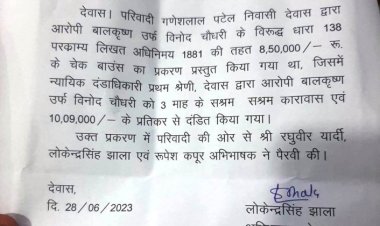 देवास। परिवादी गणेशलाल पटेल निवासी देवास द्वारा
आरोपी बालकृष्ण उर्फ विनोद चौधरी के विरूद्ध धारा 138
परकाम्य लिखत अधिनिमय 1881 की तहत 8,50,000/– रू.
के चेक बाउंस का प्रकरण प्रस्तुत किया गया था, जिसमें
न्यायिक दंडाधिकारी प्रथम श्रेणी, देवास द्वारा आरोपी बालकृष्ण
उर्फ विनोद चौधरी को 3 माह के सश्रम सश्रम कारावास एवं
10,09,000/– के प्रतिकर से दंडित किया गया।
उक्त प्रकरण में परिवादी की ओर से श्री रघुवीर यार्दी,
लोकेन्द्रसिंह झाला एवं रूपेश कपूर अभिभाषक ने पैरवी की।
देवास,
दि. 28/06/2023
लोकेन्द्रसिंह झाला